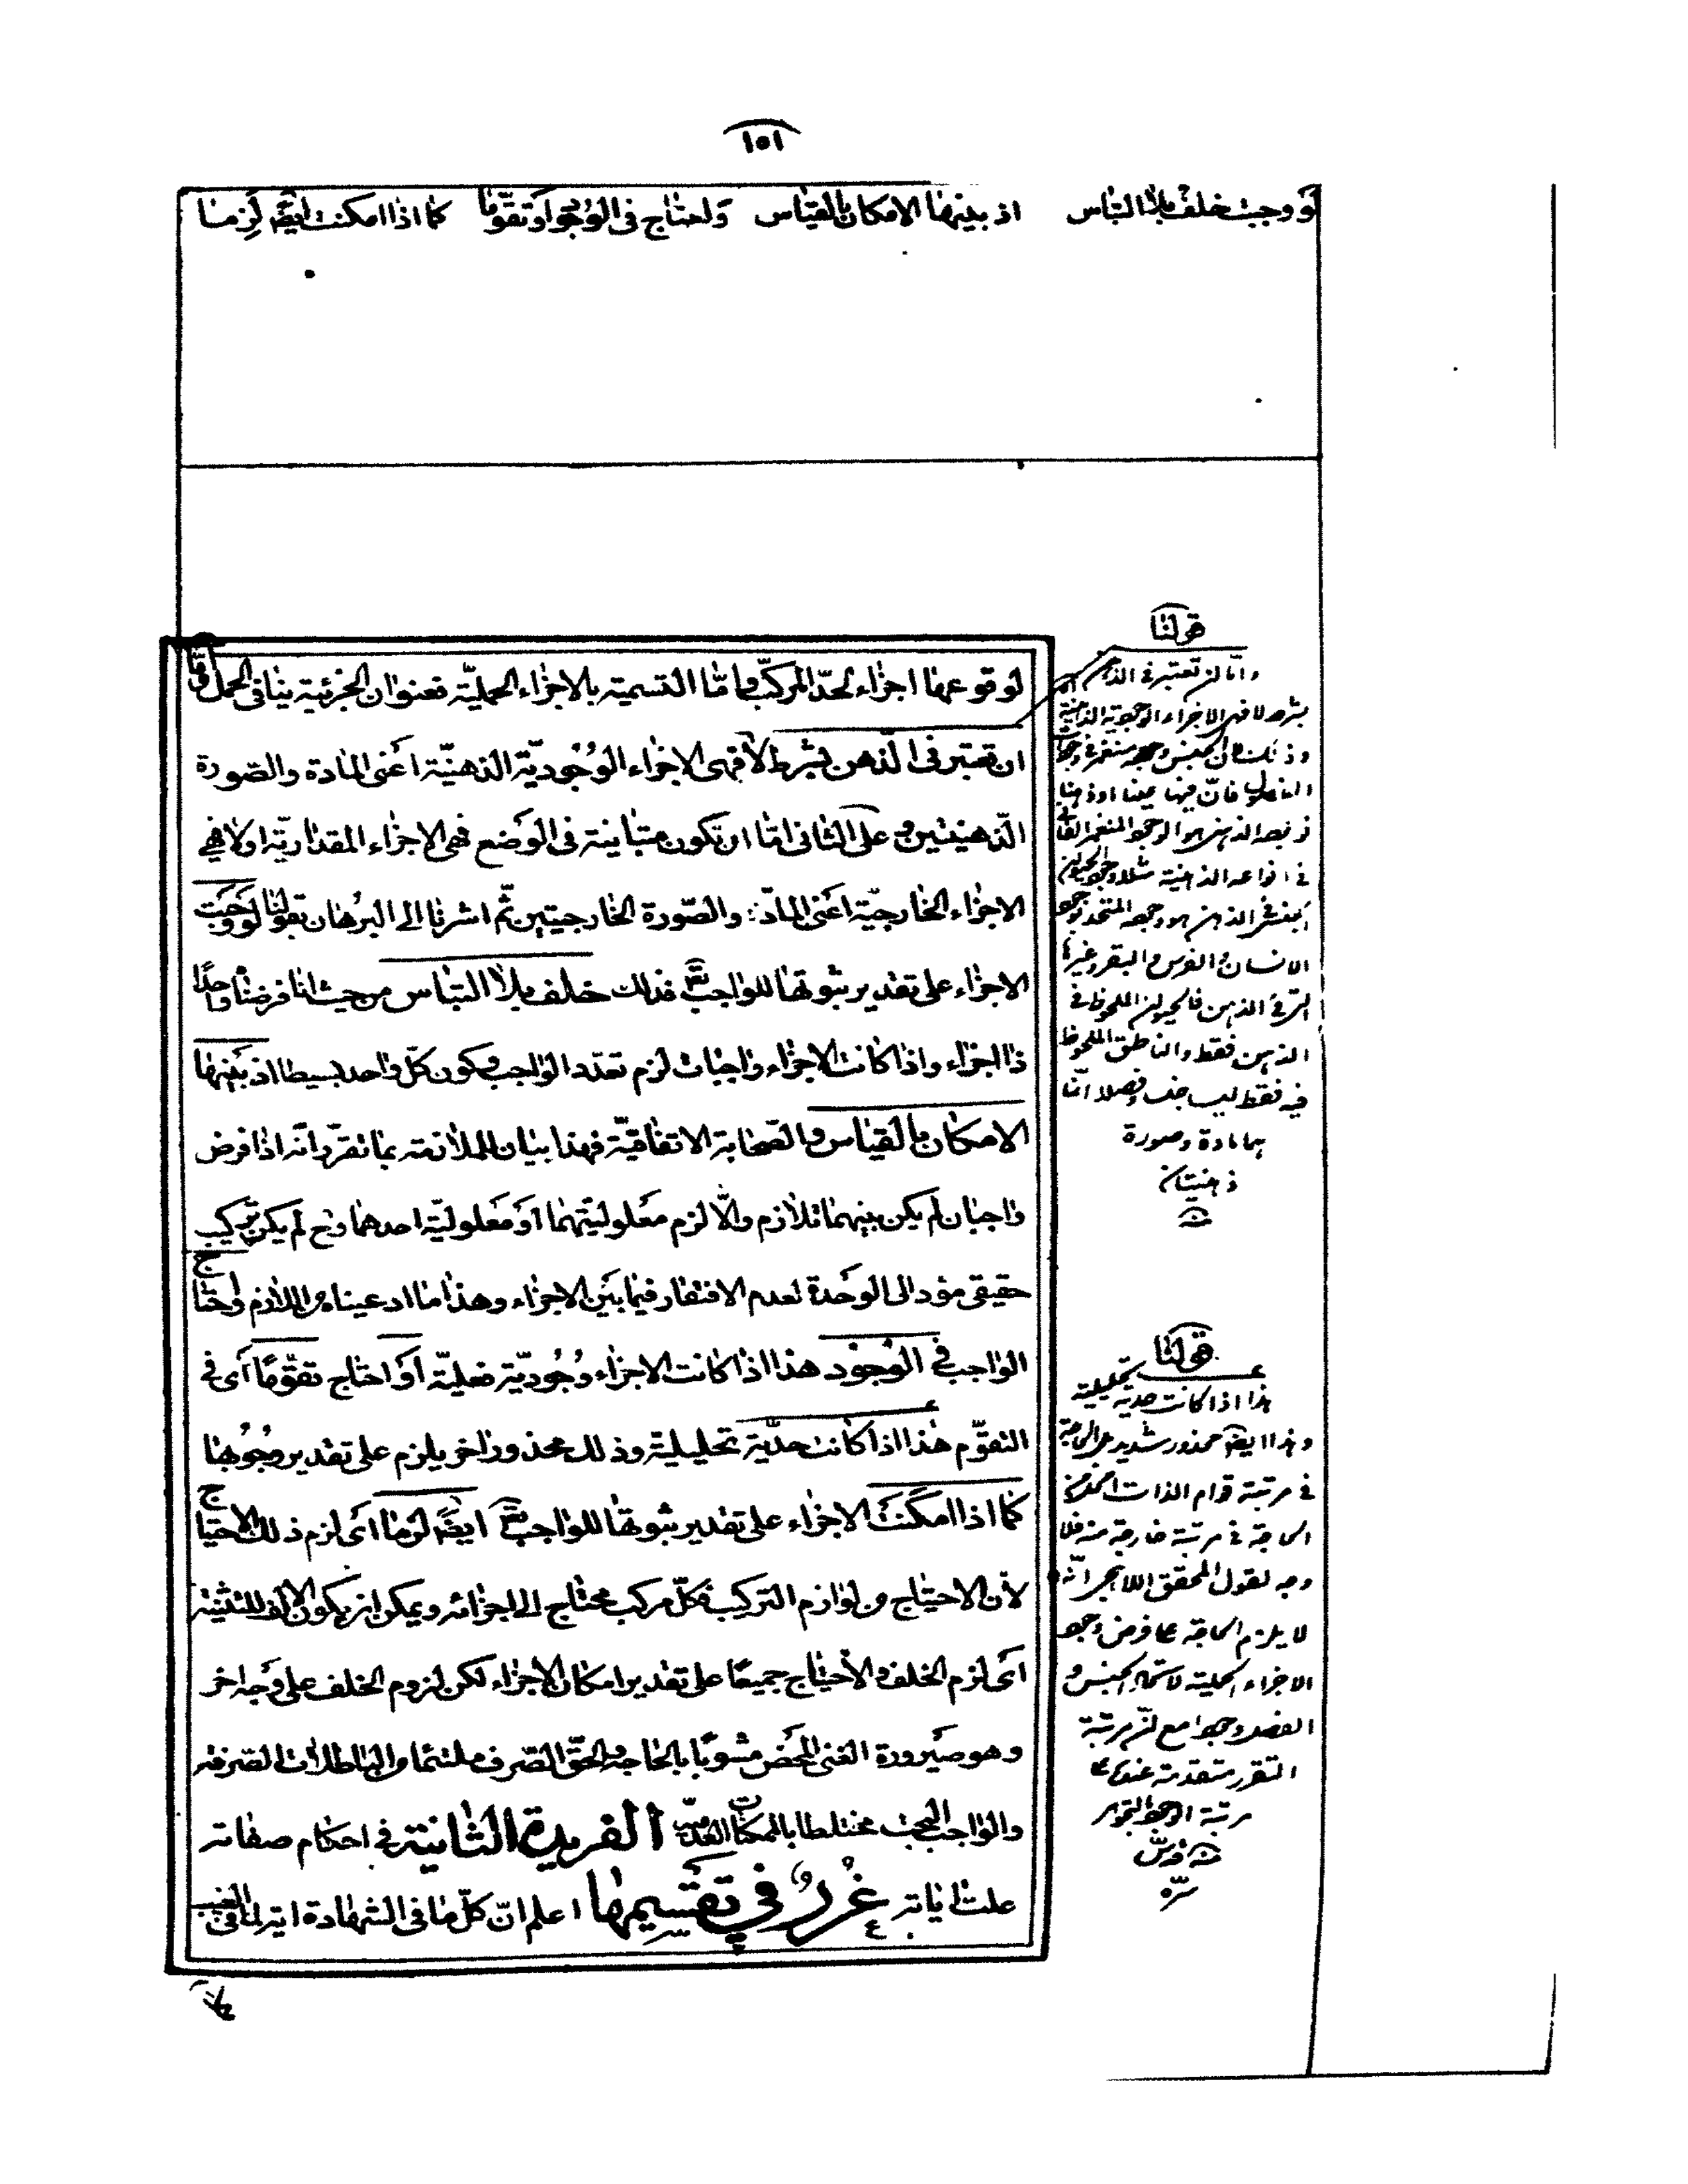 ١٥١
لو وجبت خلف بلا التباس اذ بينها الامكان بالقياس واحتاج فى الوجود او تقوّما كما اذا امكنت ايضا لزما
لوقوعها اجزاء لحدّ المركّب واما التسمية بالاجزاء الحمليّة فعنوان الجزئية ينافى الحمل وامّا
ان تعتبر فى الذهن بشرط لا فهى الاجزاء الوجوديّة الذهنيّة اعنى المادة والصورة
الذهنيتين وعلى الثانى امّا ان تكون متباينة فى الوضع فهى الاجزاء المقداريّة اولا فهى
الاجزاء الخارجيّة اعنى المادّة والصّورة الخارجيتين ثمّ اشرنا الى البرهان بقولنا لو وجبت
الاجزاء على تقدير ثبوتها للواجب تع فذلك خلف بلا التباس من حيث انا فرضنا واحدًا
ذا اجزاء واذا كانت الاجزاء واجبات لزم تعدّد الواجب وكون كلّ واحد بسيطا اذ بينها
الامكان بالقياس والصحابة الاتفاقيّة فهذا بيان للملازمة بما تقرّر انّه اذا فرض
واجبان لم يكن بينهما تلازم والّا لزم معلوليّتهما او معلوليّة احدهما وح لم يكن تركيب
حقيقى مؤد الى الوحدة لعدم الافتقار فيما بين الاجزاء وهذا ما ادعيناه من اللازم واحتاج
الواجب فى الوجود هذا اذا كانت الاجزاء وجوديّة فعليّة او احتاج تقوّمًا اى فى
التقوّم هذا اذا كانت حدّية تحليلية وذلك محذور اخر يلزم على تقدير وجوبها
كما اذا امكنت الاجزاء على تقدير ثبوتها للواجب تع ايضًا لزما اى لزم ذلك الاحتياج
لأن الاحتياج من لوازم التركيب فكلّ مركب محتاج الى اجزائه ويمكن ان يكون الالف للتثنية
اى لزم الخلف والاحتياج جميعًا على تقدير امكان الاجزاء لكن لزوم الخلف على وجه اخر
وهو صيرورة الغنى المحض مشوبًا بالحاجة والحقّ الصّرف ملتئما من الباطلات الصّرفة
والواجب البحت مختلطا بالممكنات الفريدة الثانية فى احكام صفاته
علت اياته غرر فى تقسيمها اعلم انّ كلّ ما فى الشهادة اية لما فى الغيب
قولنا
وامّا ان تعتبر فى الذهن
بشرط لا فهى الاجزاء الوجودية الذهنية
الانسان والفرس والبقر وغيرها
التى فى الذهن فالحيوان الملحوظ فى
الذهن فقط والناطق الملحوظ
فيه فقط ليسا جنسا وفصلا انّما
هما مادة وصورة
ذهنيتان
منه
قولنا
هذا اذا كانت حدية تحليلية
فى مرتبة قوام الذات اشد من
الحاجة فى مرتبة خارجة منه فلا
وجه لقول المحقق اللاهيجى انّه
لا يلزم الحاجة على فرض وجود
الاجزاء الحملية لاتحاد الجنس و
الفصل وجودا مع انّ مرتبة
التقرر متقدمة عنده على
مرتبة الوجود
منه قدّس
سرّه